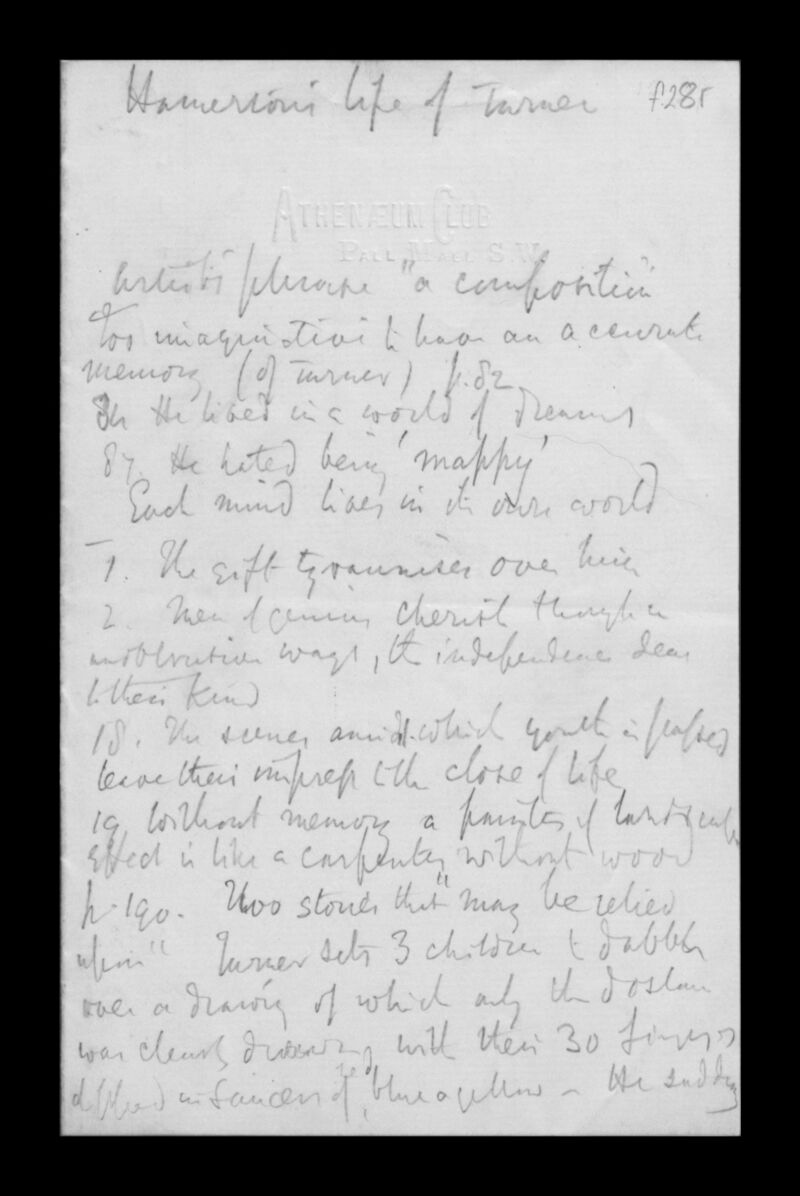 Hamerton's life of Turner f.28r
ATHENÆUM CLUB
PALL MALL S.W.
Artist's phrase "a composition"
Too imaginative to have an accurate
memory (of Turner) p.82
84 He lived in a world of dreams
87. He hated being 'mappy'
Each mind lives in its own world
1. The gift tyrannises over him
2. Men of genius cherish though in
unobtrusive ways, the independence dear
to their kind
18. The scenes amidst which youth is passed
leave their impress to the close of life
19 Without memory a painter of landscape
effect is like a carpenter without wood
p.190. Two stories that "may be relied
upon" Turner sets 3 children to dabble
over a drawing of which only the
was clearly drawing, with their 30 fingers
dipped in saucers of red, blue & yellow – He suddenly